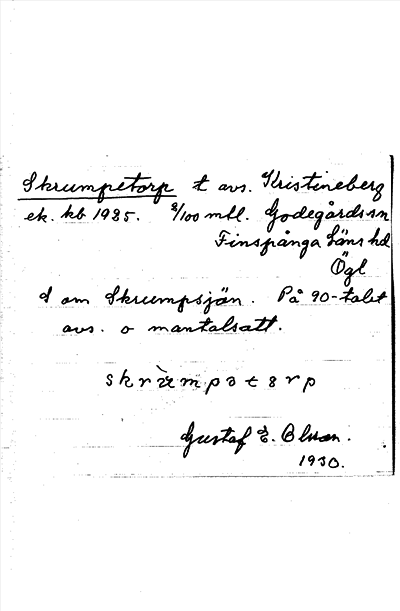 Skrumpetorp t avs. Kristineberg
ek. kb 1925. 2/100 mtl. Godegårds sn
Finspånga läns hd
Ögl
S om Skrumpsjön. På 90-talet
avs. o mantalsatt.
Gustaf E. Olsson.
1930.